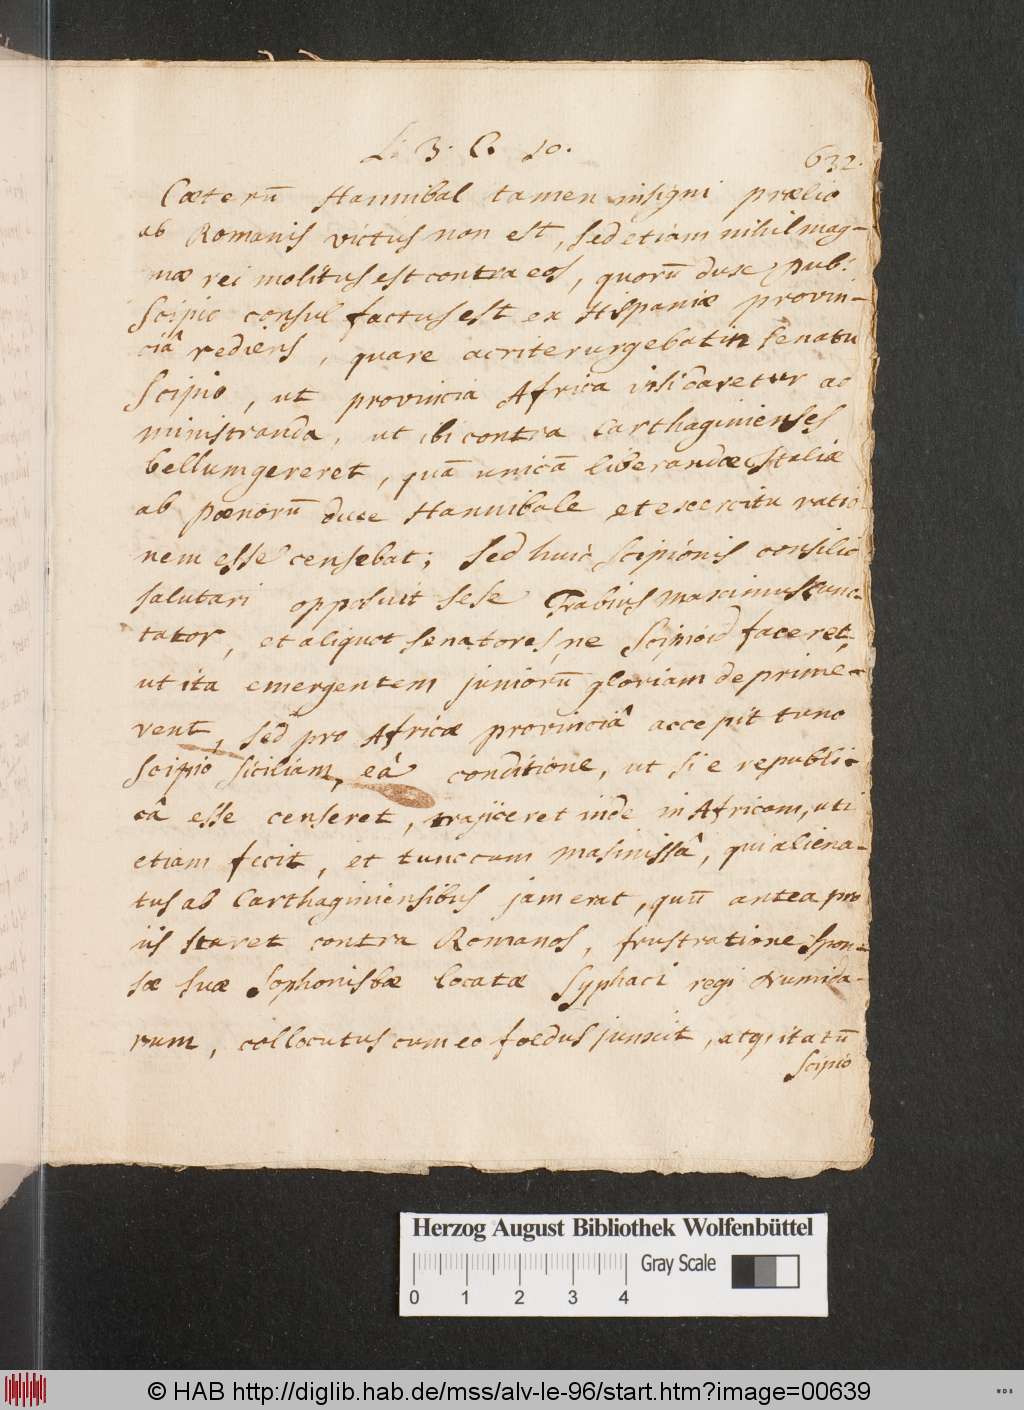 L. 3. C. 10.
632.
Cæterū Hannibal tamen insigni prælio
ab Romanis victus non est, sed etiam nihil mag-
næ rei molitus est contra eos, quorū dux Pub:
Scipio consul factus est ex Hispaniæ provin-
ciâ rediens, quare acriter urgebat in senatu
Scipio, ut provincia Africa ipsi daretur ad
ministranda, ut ibi contra Carthaginienses
bellum gereret, quā unicā liberandæ Italiæ
ab Pœnorū duce Hannibale et exercitu ratio-
nem esse censebat; sed huic Scipionis consilio
salutari opposuit sese Fabius Maximus Cunc-
tator, et aliquot senatores, ne Scipio id faceret,
ut ita emergentem juniorū gloriam deprime-
rent, sed pro Africæ provinciâ accepit tunc
Scipio Siciliam, eâ conditione, ut si e republi-
câ esse censeret, trajiceret inde in Africam, uti
etiam fecit, et tunc cum Masinissâ, qui aliena-
tus ab Carthaginiensibus jam erat, quū antea pro
iis staret contra Romanos, frustratione spon-
sæ suæ Sophonisbæ locatæ Syphaci regi Numida-
rum, collocutus cum eo foedus junxit, atq; itatū
Scipio
Herzog August Bibliothek Wolfenbüttel
Gray Scale
0 1 2 3 4
© HAB http://diglib.hab.de/mss/alv-le-96/start.htm?image=00639